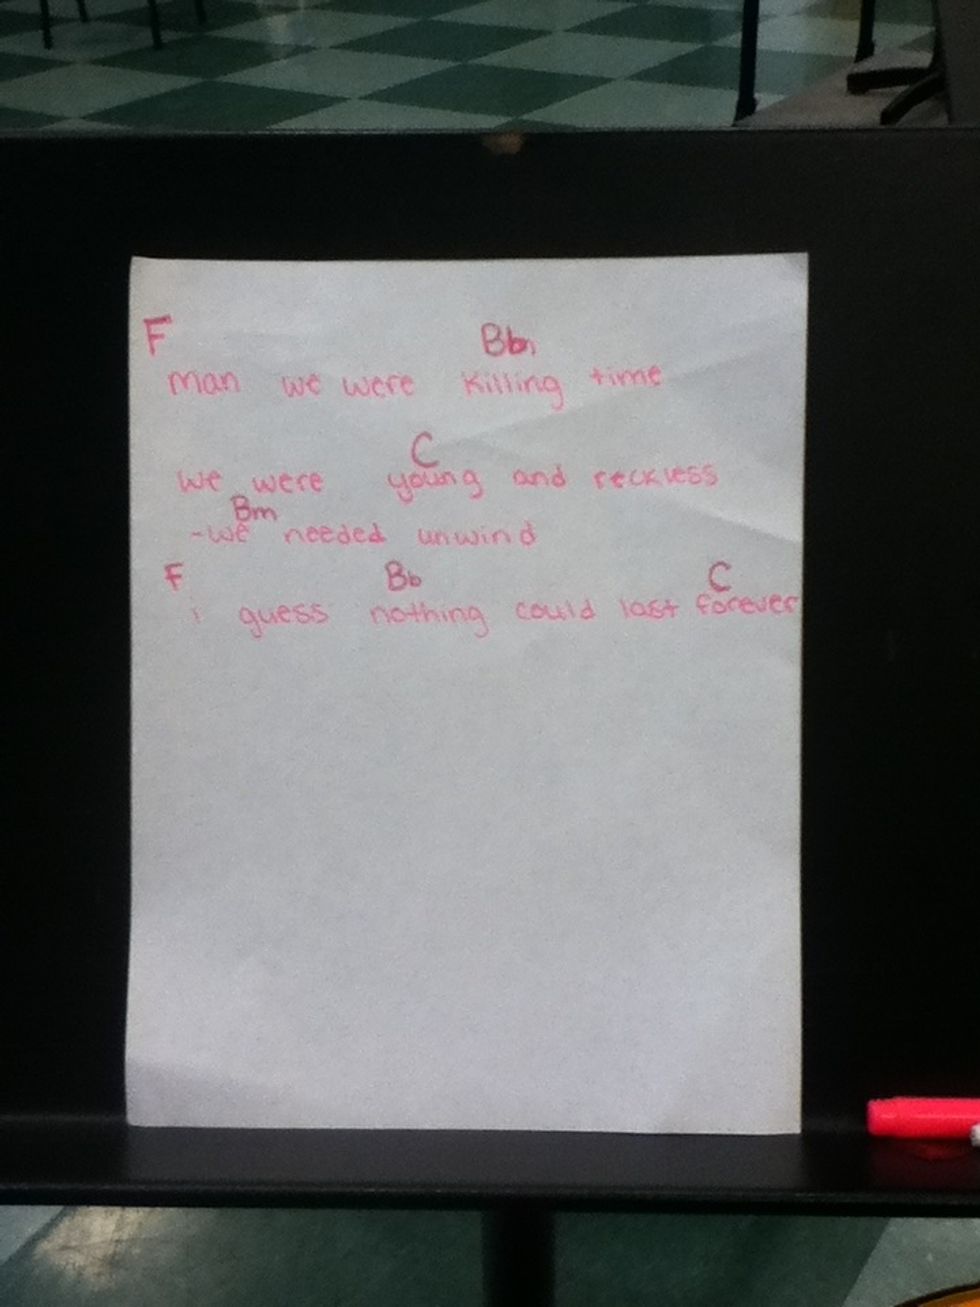 F Bb
man we were killing time
C
we were young and reckless
Bm
-we needed unwind
F Bb C
i guess nothing could last forever